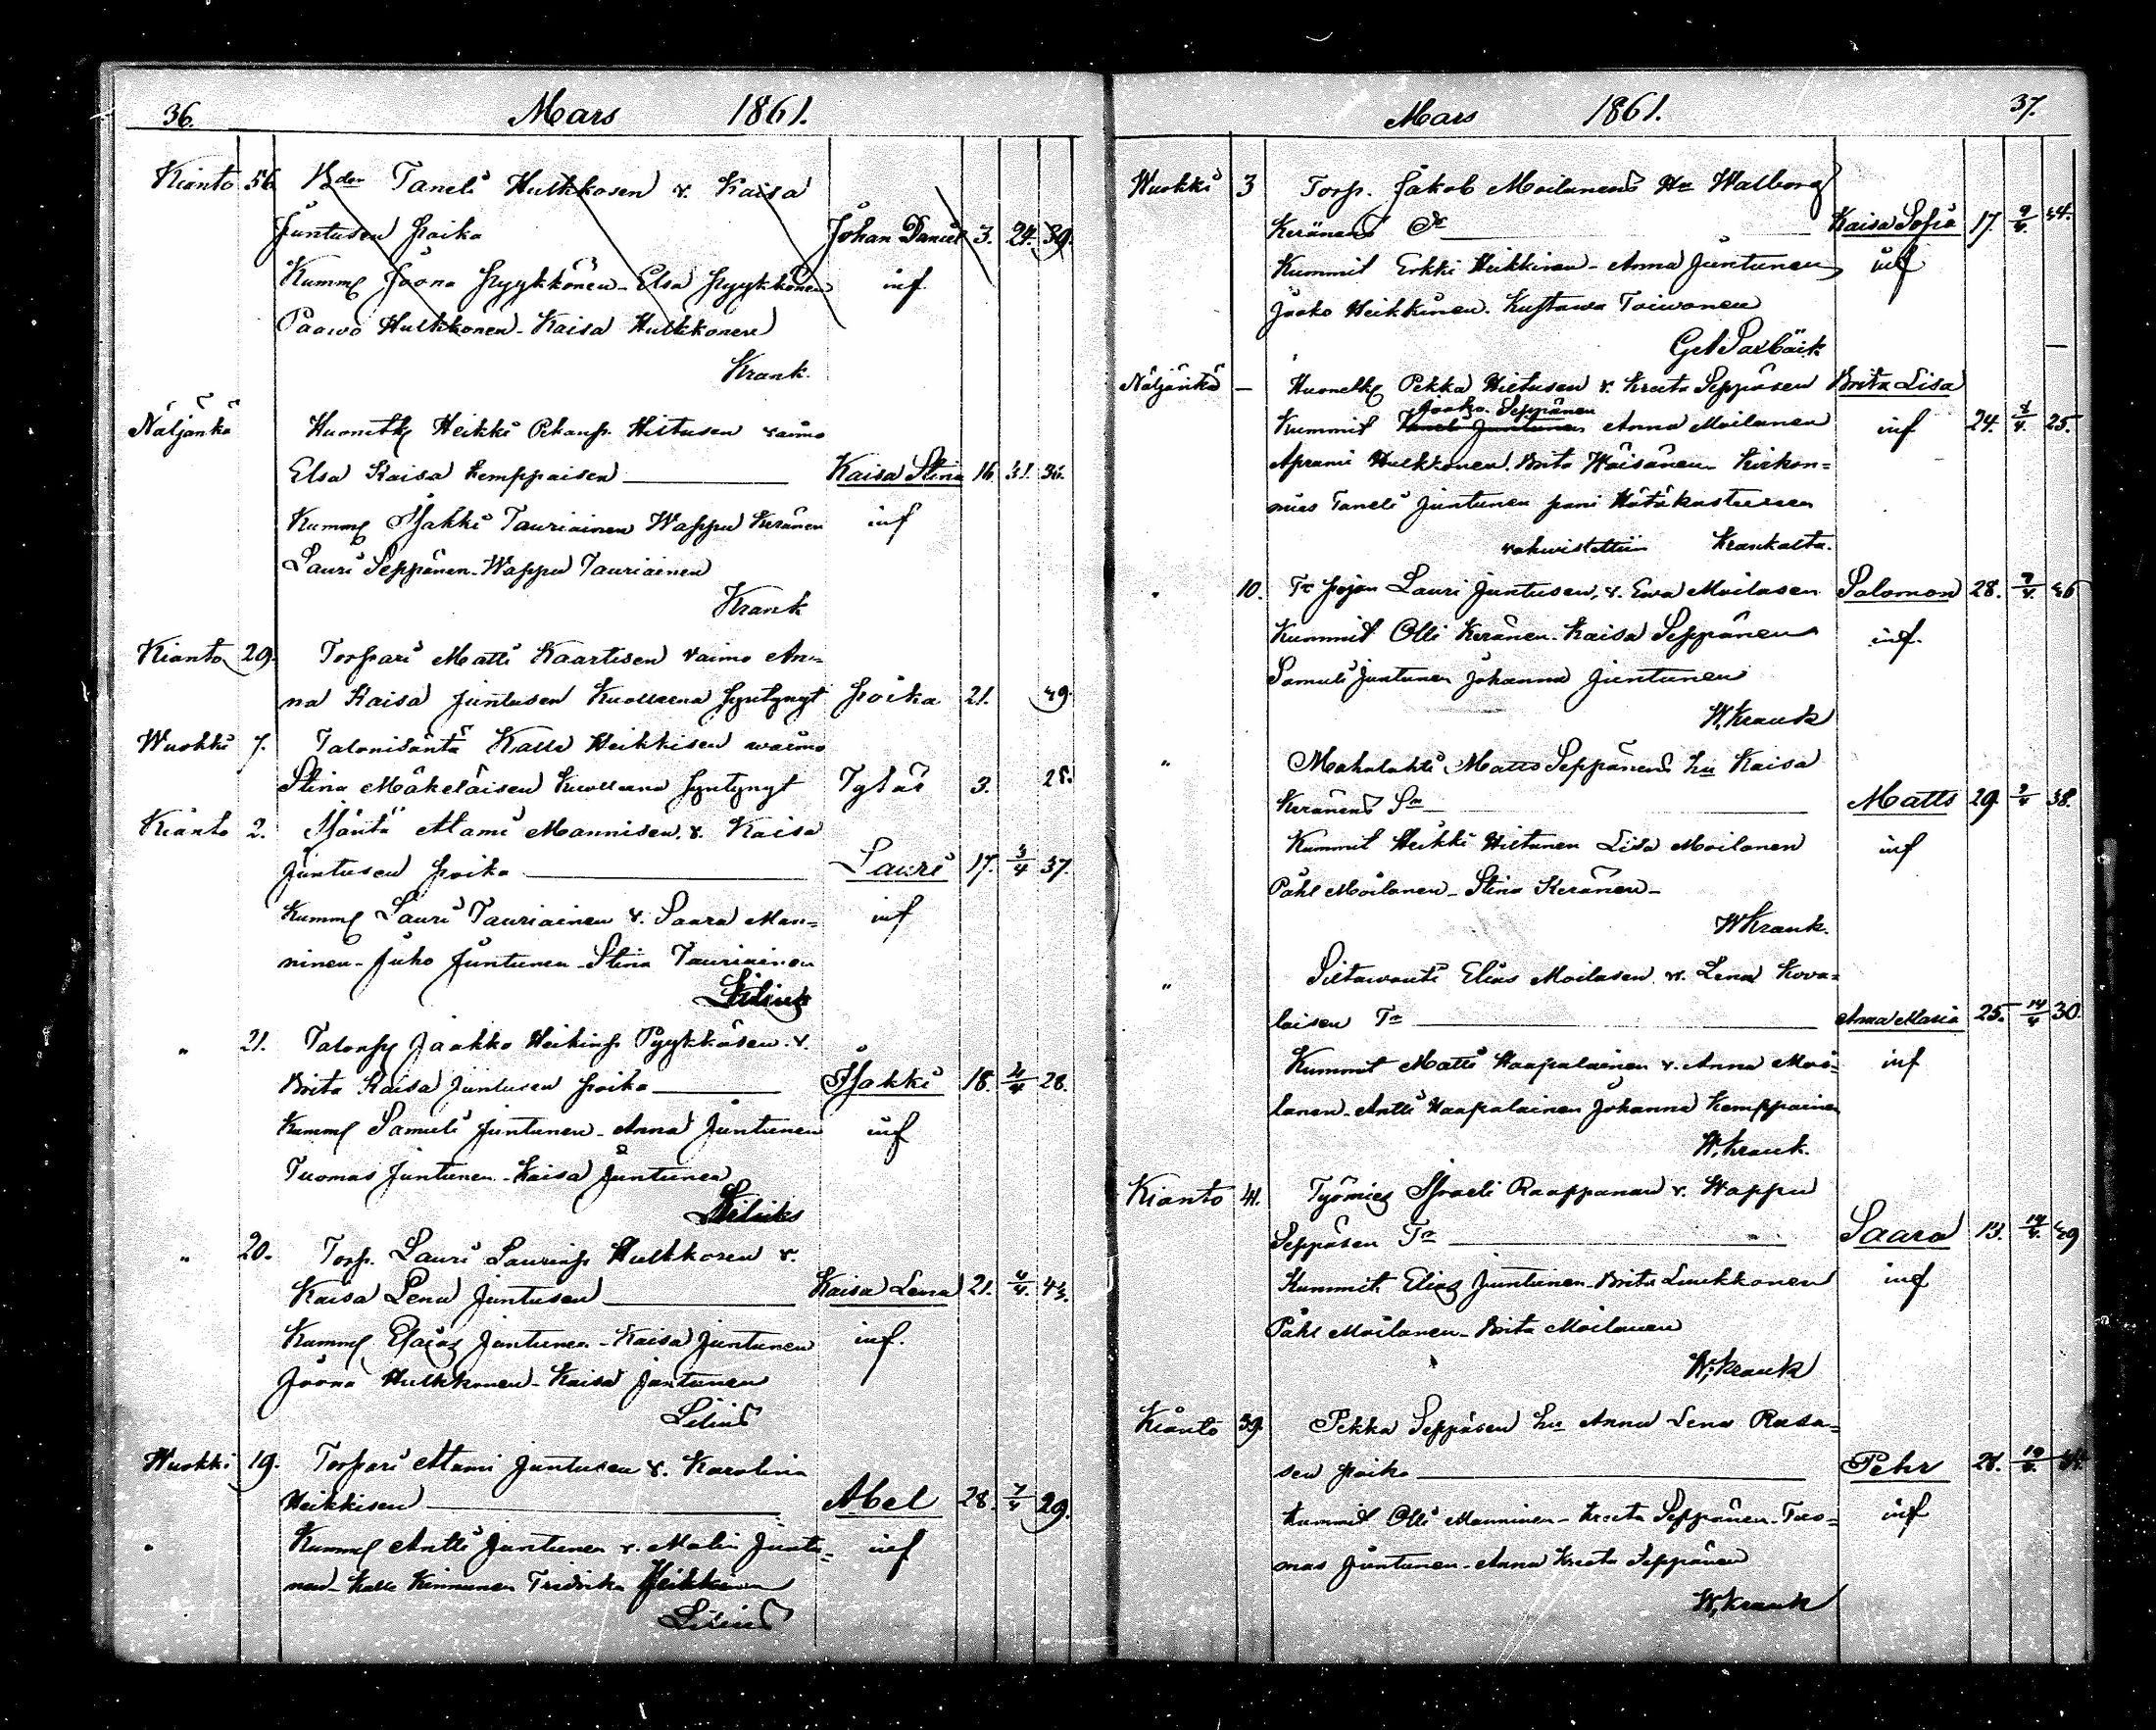 36. Mars 1861.
Kianto 56. Bdr Taneli Hulkkosen v. Kaisa
Juntusen poika Johan Daniel 3. 24. 39.
Kumm Joona Pyykkönen - Elsa Pyykkönen inf.
Paavo Hulkkonen - Kaisa Hulkkonen
Krank.
Näljänkä Huonetk Heikki Pekanp. Hiltusen vaimo
Elsa Kaisa Kemppaisen Kaisa Stina 16. 31. 36.
Kumm Isakki Tauriainen Wappu Keränen inf
Lauri Seppänen - Wappu Tauriainen
Krank
Kianto 29. Torpari Matti Kaartisen vaimo An-
na Kaisa Juntusen Kuolleena syntynyt poika 21. 29.
Wuokki 7. Talonisäntä Kalle Heikkisen waimo
Stina Mäkeläisen Kuolleena syntynyt Tytär 3. 28.
Kianto 2. Isäntä Atami Mannisen v. Kaisa
Juntusen poika Lauri 17. 3/4 37.
Kumm Lauri Tauriainen v. Saara Man-
inf
ninen - Juho Juntunen - Stina Tauriainen
Lilius
" 21. Talonp Jaakko Heikinp. Pyykkösen v.
Brita Kaisa Juntusen poika Isakki 18. 4/4 28.
Kumm Samuli Juntunen - Anna Juntunen inf
Tuomas Juntunen - Kaisa Juntunen
" 20. Torp. Lauri Laurinp Hulkkosen v.
Kaisa Lena Juntusen Kaisa Lena 21. 4/4. 43.
Kumm Esaias Juntunen - Kaisa Juntunen inf.
Joona Hulkkonen - Kaisa Juntunen
Lilius
Wuokki 19. Torpari Atami Juntusen v. Karolina
Heikkisen Abel 28. 7/4 29.
" Kumm Antti Juntunen v. Malin Juntu-
inf
nen - Kalle Kinnunen Fredrika Heikkinen
Lilius
Mars 1861. 37.
Wuokki 3 Torp. Jakob Moilanens Hu Walborg
Keränens Dr Kaisa Sofia 17. 9/4. 44.
Kummit Erkki Heikkinen - Anna Juntunen inf
Jaako Heikkinen. Kustawa Toiwonen
Näljänkä - Huonetk Pekka Hiltusen v. Kreeta Seppäsen Brita Lisa
Jaako Seppänen
Kummit Taneli Juntunen Anna Moilanen inf 24. 25.
Aprami Hulkkonen. Brita Wäisänen Kirkon-
mies Taneli Juntunen pani Hätäkasteeseen
vahwistettiin Krankalta.
" 10. Tr pojan Lauri Juntusen, v. Ewa Moilasen Salomon 28. 7/4. 46
Kummit Olli Keränen - Kaisa Seppänen inf.
Samuli Juntunen Johanna Juntunen
W. Krank
" Mahalahti Matts Seppänens hu Kaisa
Keränens Sn Matts 29. 38.
Kummit Heikki Hiltunen Lisa Moilanen inf
Påhl Moilanen - Stina Keränen -
W Krank.
" Siltavouti Elias Moilasen v. Lena Kova-
laisen Tr Anna Maria 25. 14/4 30
Kummit Matti Haapalainen v. Anna Moi-
inf
lanen - Antti Haapalainen Johanna Kemppainen
W. Krank.
Kianto 41. Työmies Israeli Raappanan v. Wappu
Seppäsen Tr Saara 13. 14/4. 29
Kummit. Elias Juntunen - Brita Luukkonen inf
Påhl Moilanen - Brita Moilanen
W. Krank
Kianto 39. Pekka Seppäsen hu Anna Lena Rasa-
sen poika Pehr
Kummit Olli Manninen - Kreeta Seppänen - Tuo-
inf
mas Juntunen - Anna Kreeta Seppänen
W. Krank